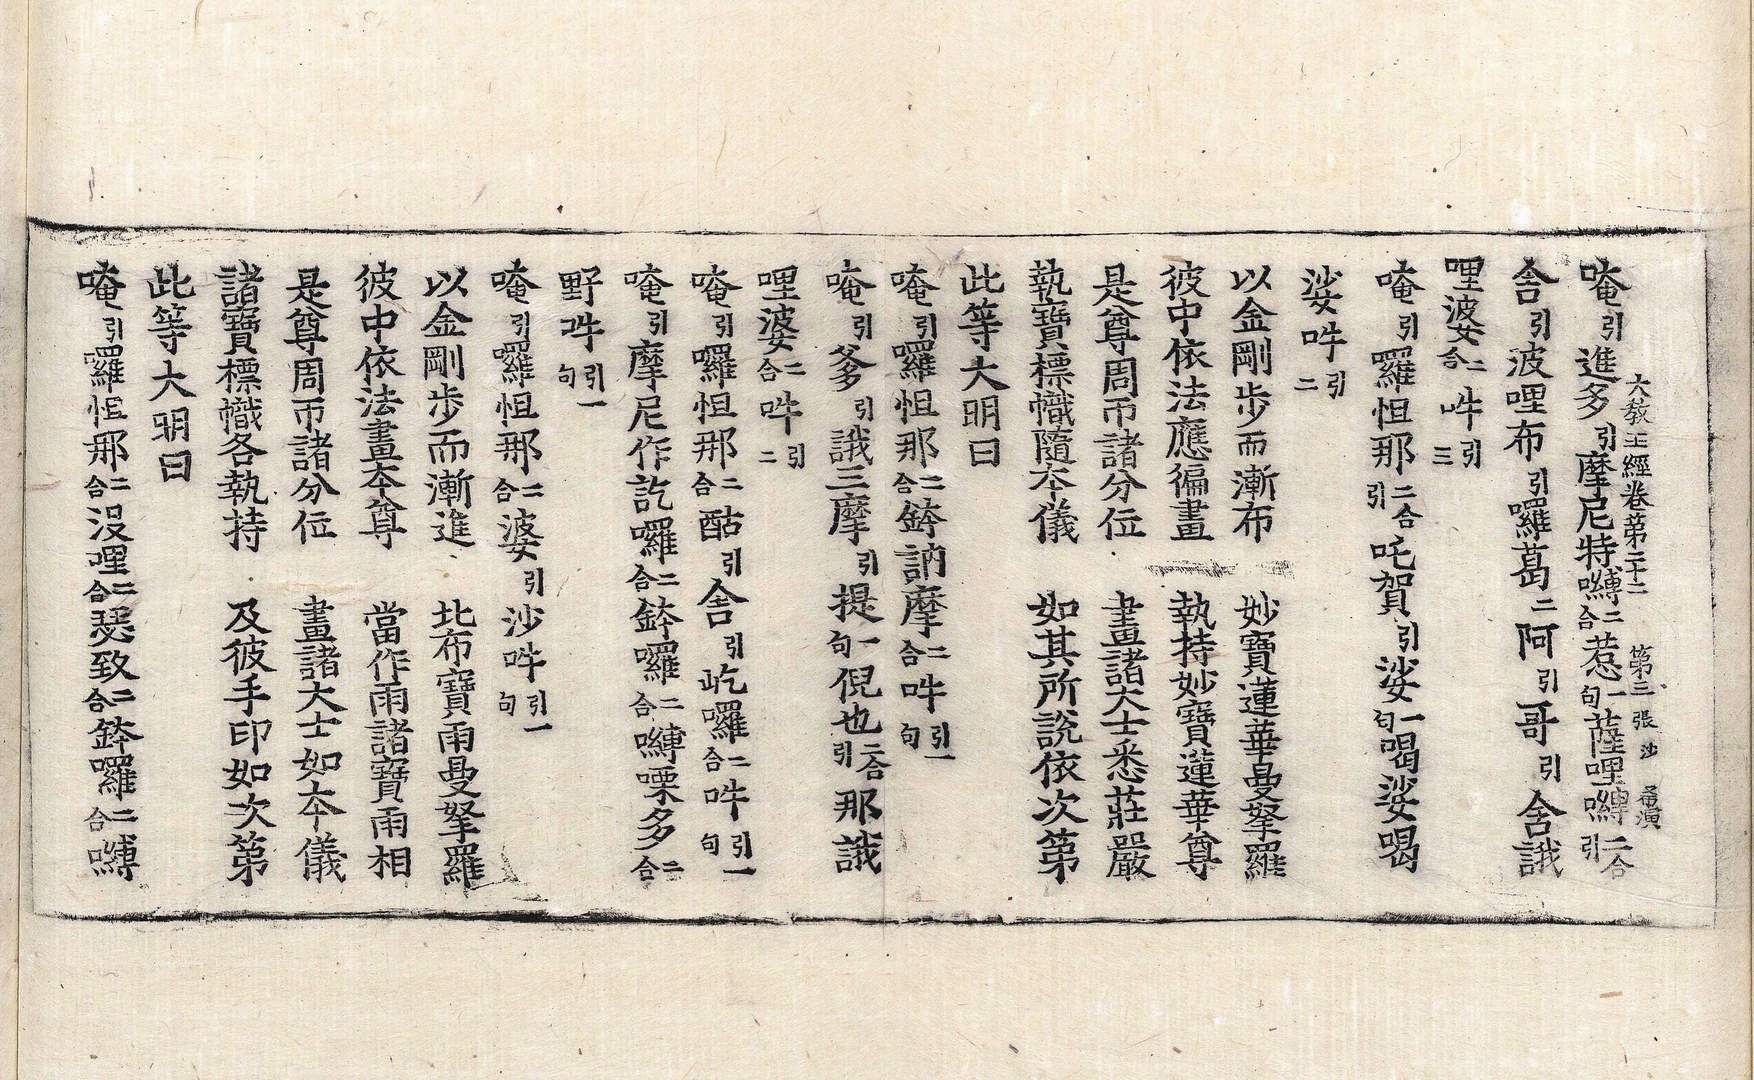 大教王經卷第二十二　第三張　沙
唵引進多引摩尼特嚩二合惹一句薩哩嚩二合引
舍引波哩布引囉葛二阿引哥引舍誐
哩波二合吽引三
唵引囉怛那二合引吒賀引娑一句喝娑喝
娑吽引二
以金剛步而漸布　妙寶蓮華曼拏羅
彼中依法應徧畫　執持妙寶蓮華尊
是尊周帀諸分位　畫諸大士悉莊嚴
執寶標幟隨本儀　如其所說依次第
此等大明曰
唵引囉怛那二合鉢訥摩二合吽引一句
唵引爹引誐三摩引提一句倪也二合引那誐
哩婆二合吽引二
唵引囉怛那二合酤引舍引屹囉二合吽引一句
唵引摩尼作訖囉二合鉢囉二合嚩栗多二合
野吽引一句
唵引囉怛那二合婆引沙吽引一句
以金剛步而漸進　北布寶雨曼拏羅
彼中依法畫本尊　當作雨諸寶雨相
是尊周帀諸分位　畫諸大士如本儀
諸寶標幟各執持　及彼手印如次第
此等大明曰
唵引囉怛那二合沒哩二合瑟致二合鉢囉二合嚩